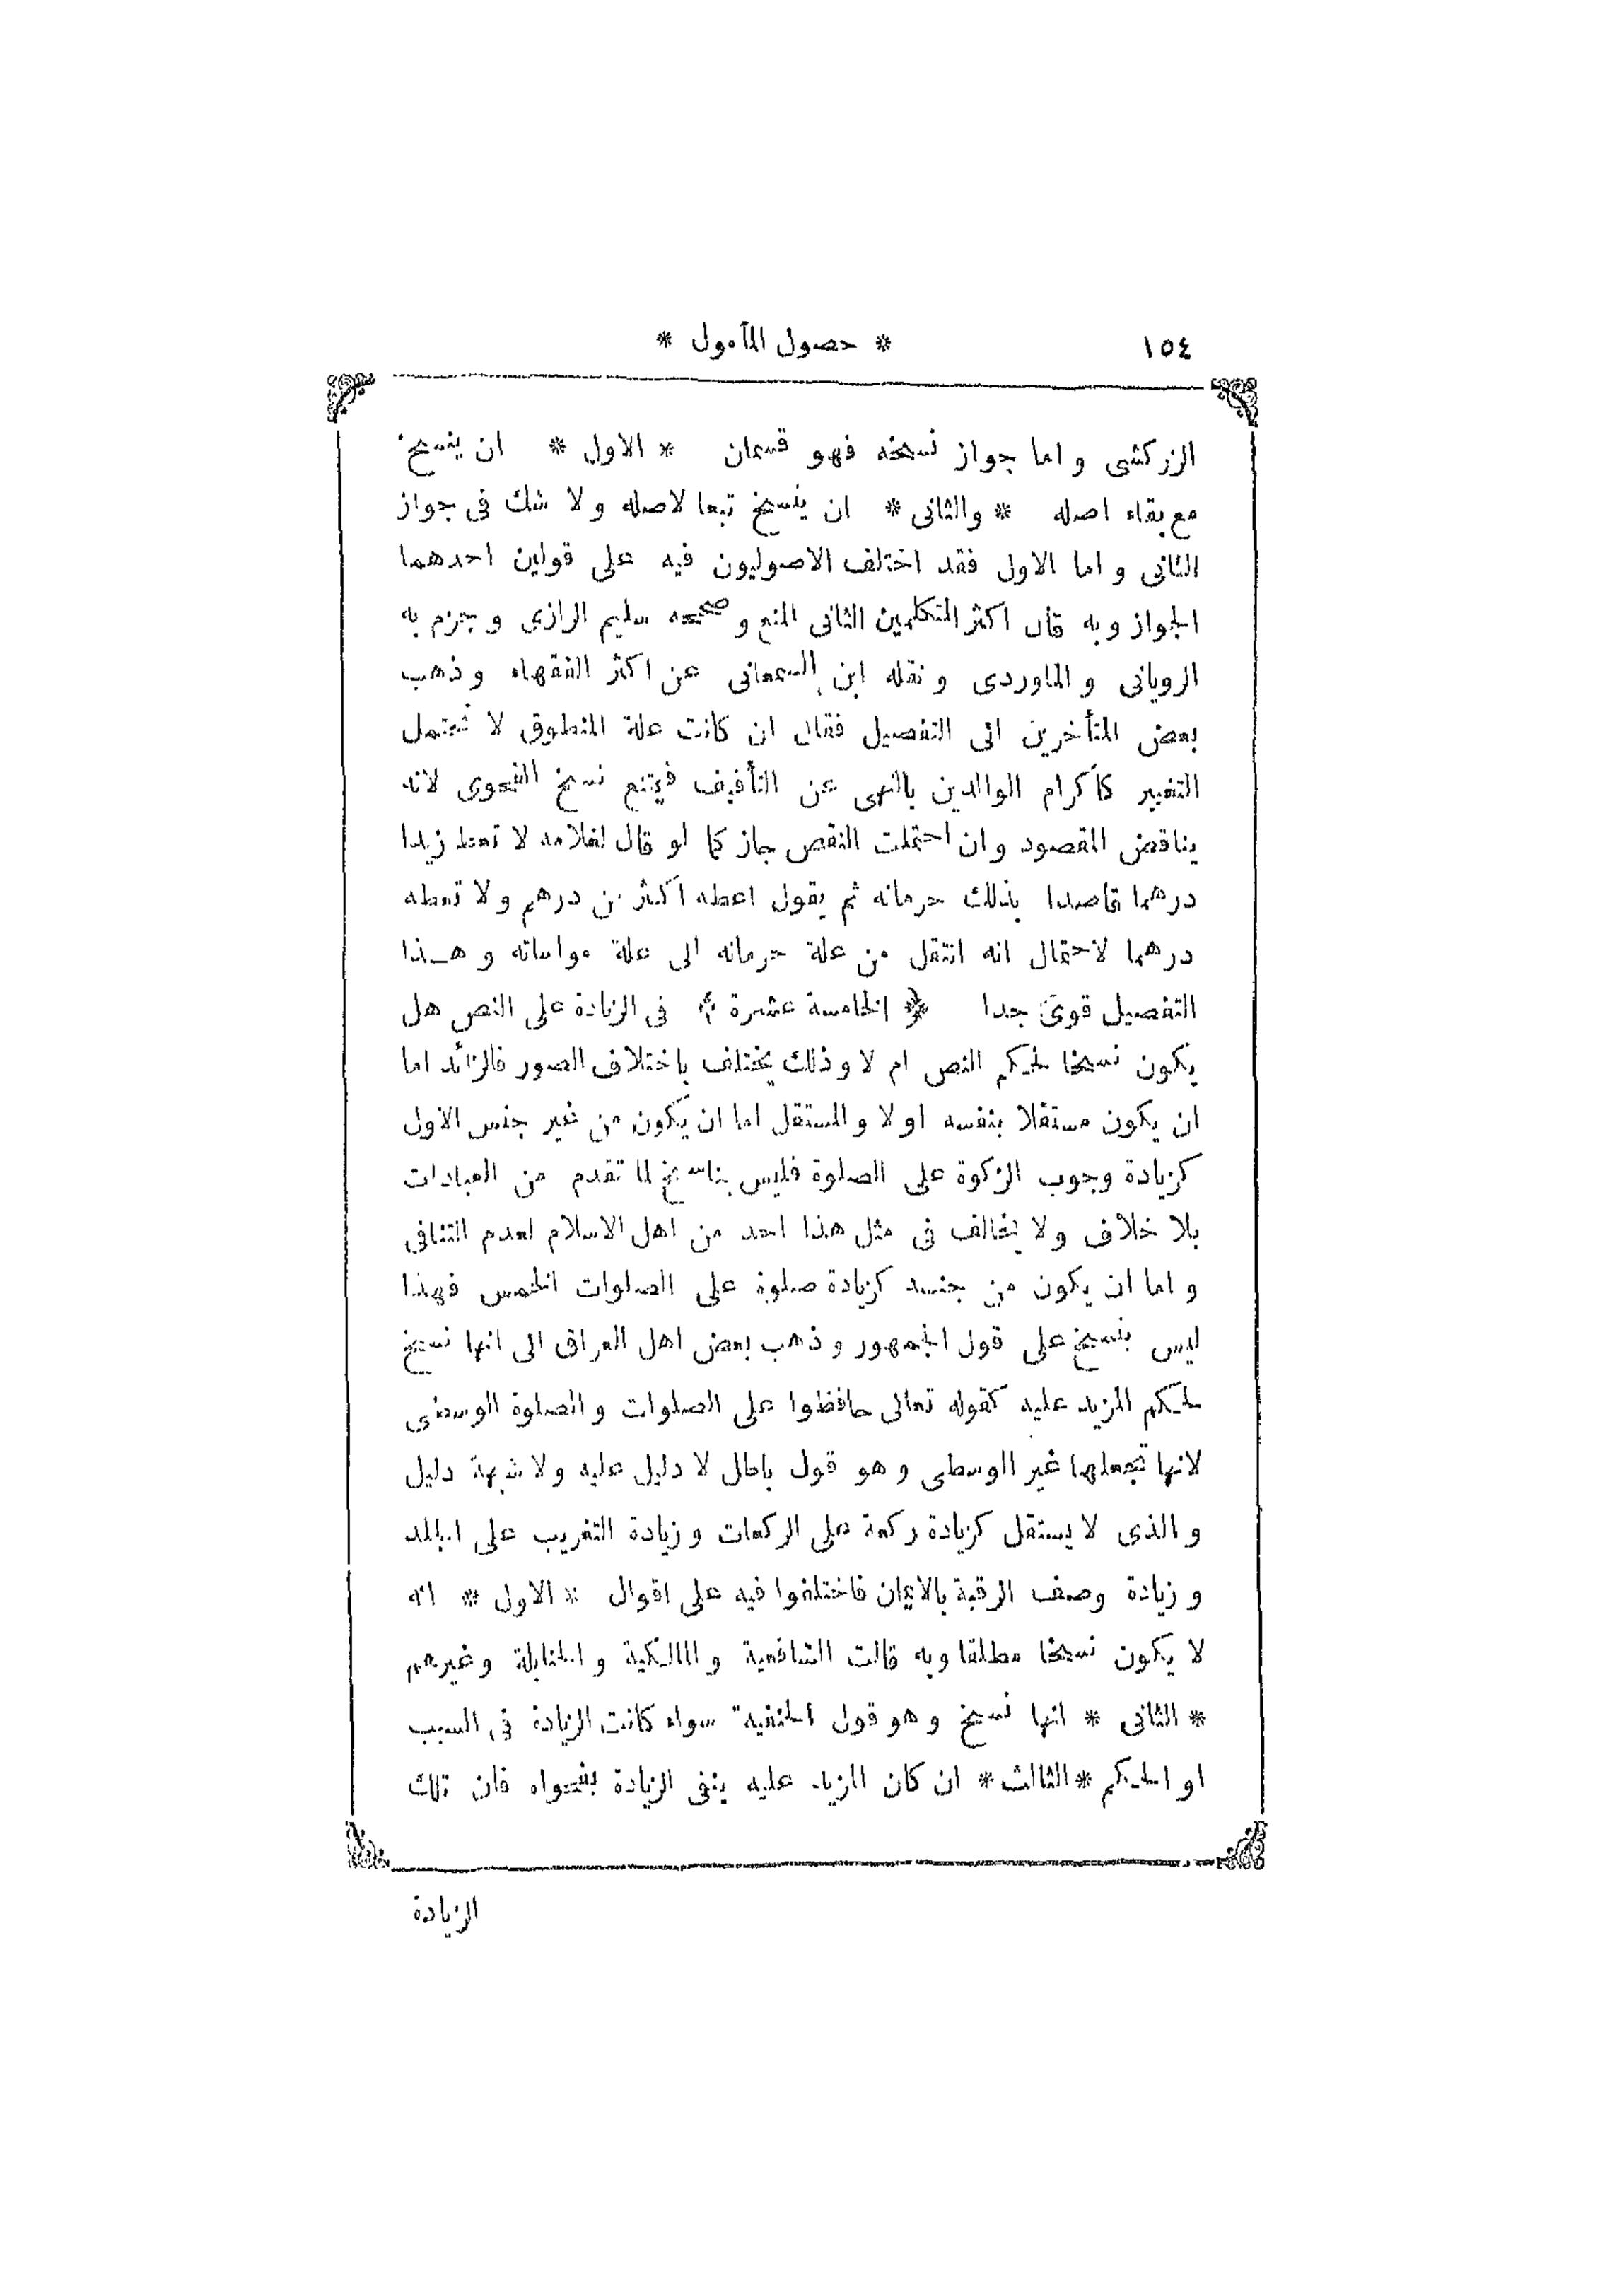 ١٥٤ * حصول المأمول *
الزركشى و اما جواز نسخه فهو قسمان * الاول * ان ينسخ
مع بقاء اصله * والثانى * ان ينسخ تبعا لاصله و لا شك فى جواز
الثانى و اما الاول فقد اختلف الاصوليون فيه على قولين احدهما
الجواز و به قال اكثر المتكلمين الثانى المنع و صححه سليم الرازى و جزم به
الرويانى و الماوردى و نقله ابن السمعانى عن اكثر الفقهاء و ذهب
بعض المتأخرين الى التفصيل فقال ان كانت علة المنطوق لا تحتمل
التغيير كاكرام الوالدين بالنهى عن التأفيف فيمتنع نسخ الفحوى لانه
يناقض المقصود و ان احتملت النقض جاز كما لو قال لغلامه لا تعط زيدا
درهما قاصدا بذلك حرمانه ثم يقول اعطه اكثر من درهم و لا تعطه
درهما لاحتمال انه انتقل من علة حرمانه الى علة مواساته و هـذا
التفصيل قوى جدا ﴿ الخامسة عشرة ﴾ فى الزيادة على النص هل
يكون نسخا لحكم النص ام لا و ذلك يختلف باختلاف الصور فالزائد اما
ان يكون مستقلا بنفسه او لا و المستقل اما ان يكون من غير جنس الاول
كزيادة وجوب الزكوة على الصلوة فليس بناسخ لما تقدم من العبادات
بلا خلاف و لا يخالف فى مثل هذا احد من اهل الاسلام لعدم التنافى
و اما ان يكون من جنسه كزيادة صلوة على الصلوات الخمس فهذا
ليس بنسخ على قول الجمهور و ذهب بعض اهل العراق الى انها نسخ
لحكم المزيد عليه كقوله تعالى حافظوا على الصلوات و الصلوة الوسطى
لانها تجعلها غير الوسطى و هو قول باطل لا دليل عليه و لا شبهة دليل
و الذى لا يستقل كزيادة ركعة على الركعات و زيادة التغريب على الجلد
و زيادة وصف الرقبة بالايمان فاختلفوا فيه على اقوال * الاول * انه
لا يكون نسخا مطلقا و به قالت الشافعية و المالكية و الحنابلة و غيرهم
* الثانى * انها نسخ و هو قول الحنفية سواء كانت الزيادة فى السبب
او الحكم * الثالث * ان كان المزيد عليه ينفى الزيادة بفحواه فان تلك
الزيادة